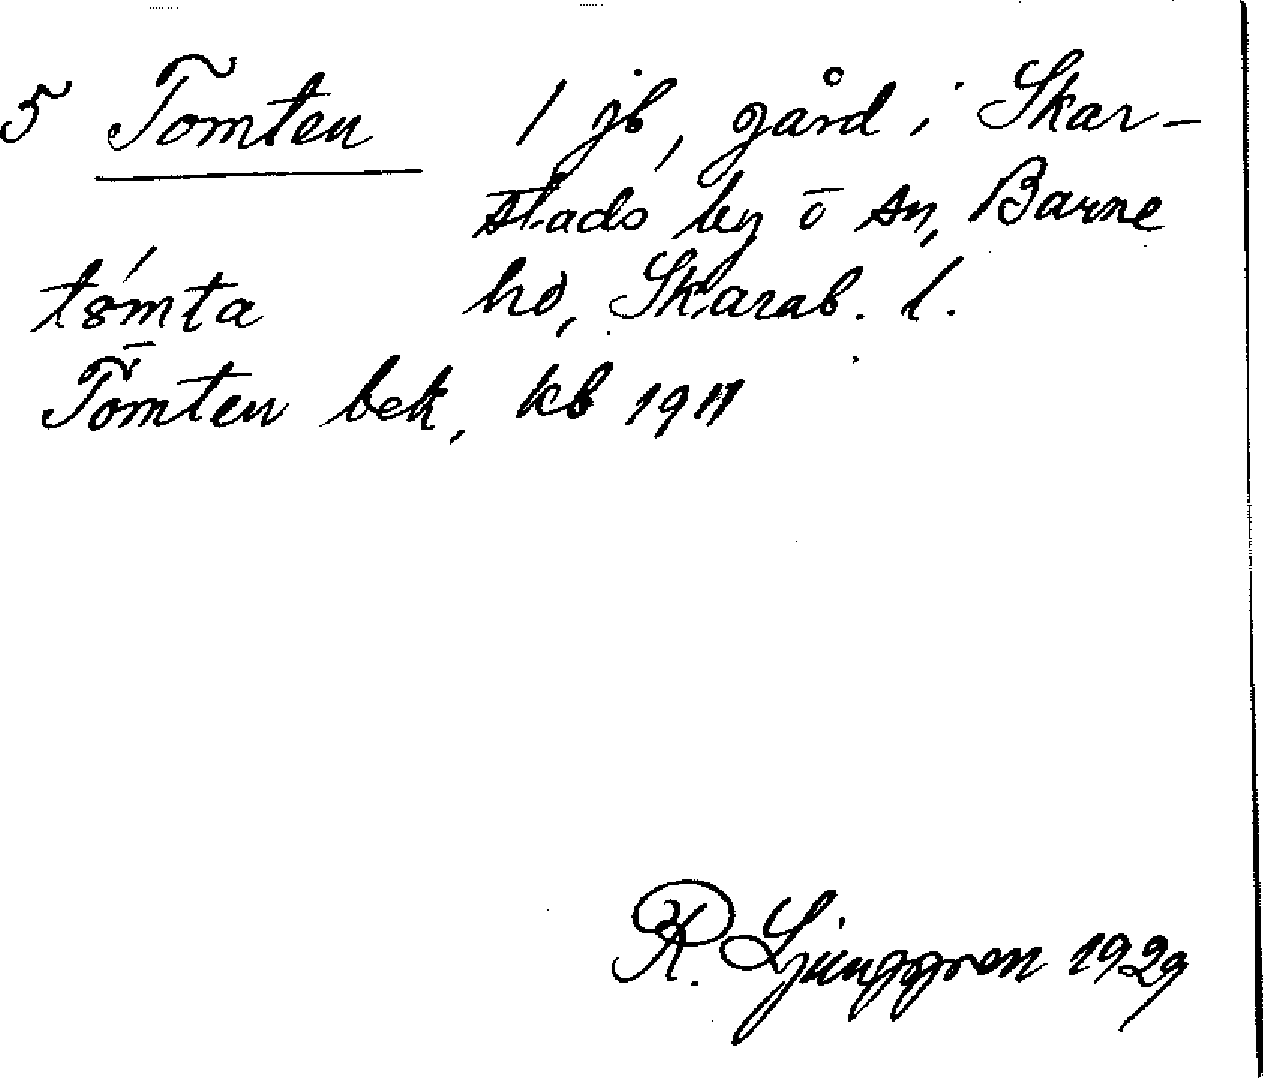 5 Tomten 1 jb, gård i Skar-
stads by o sn, Barne
tómta hd, Skarab. l.
Tomten bek, kb 1911
R. Ljunggren 1929